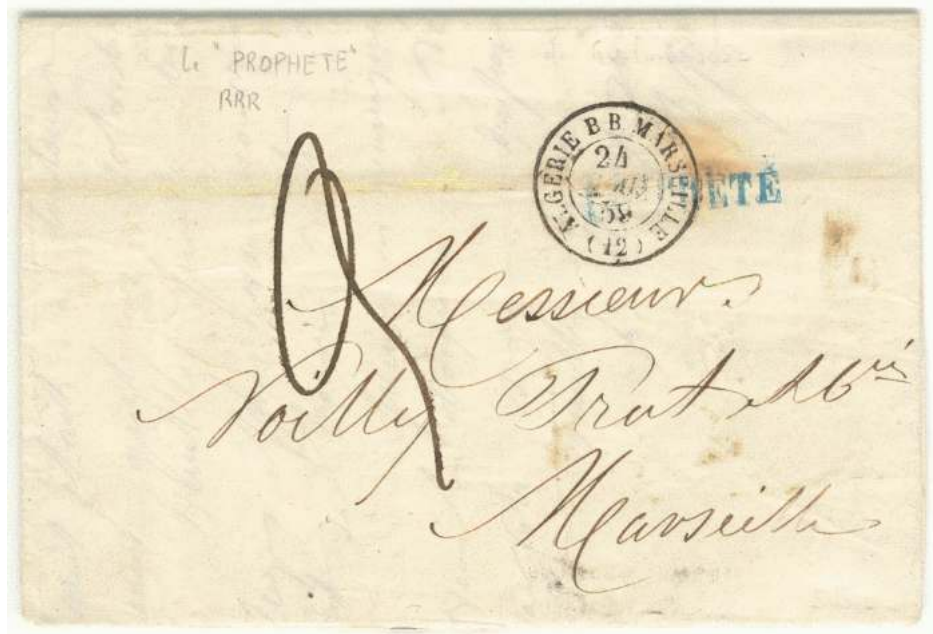 Le "PROPHETE"
RRR
ALGERIE B B MARSEILLE
24
59
(12)
ETÉ
Messieurs
Noilly Prat & Cie
Marseille